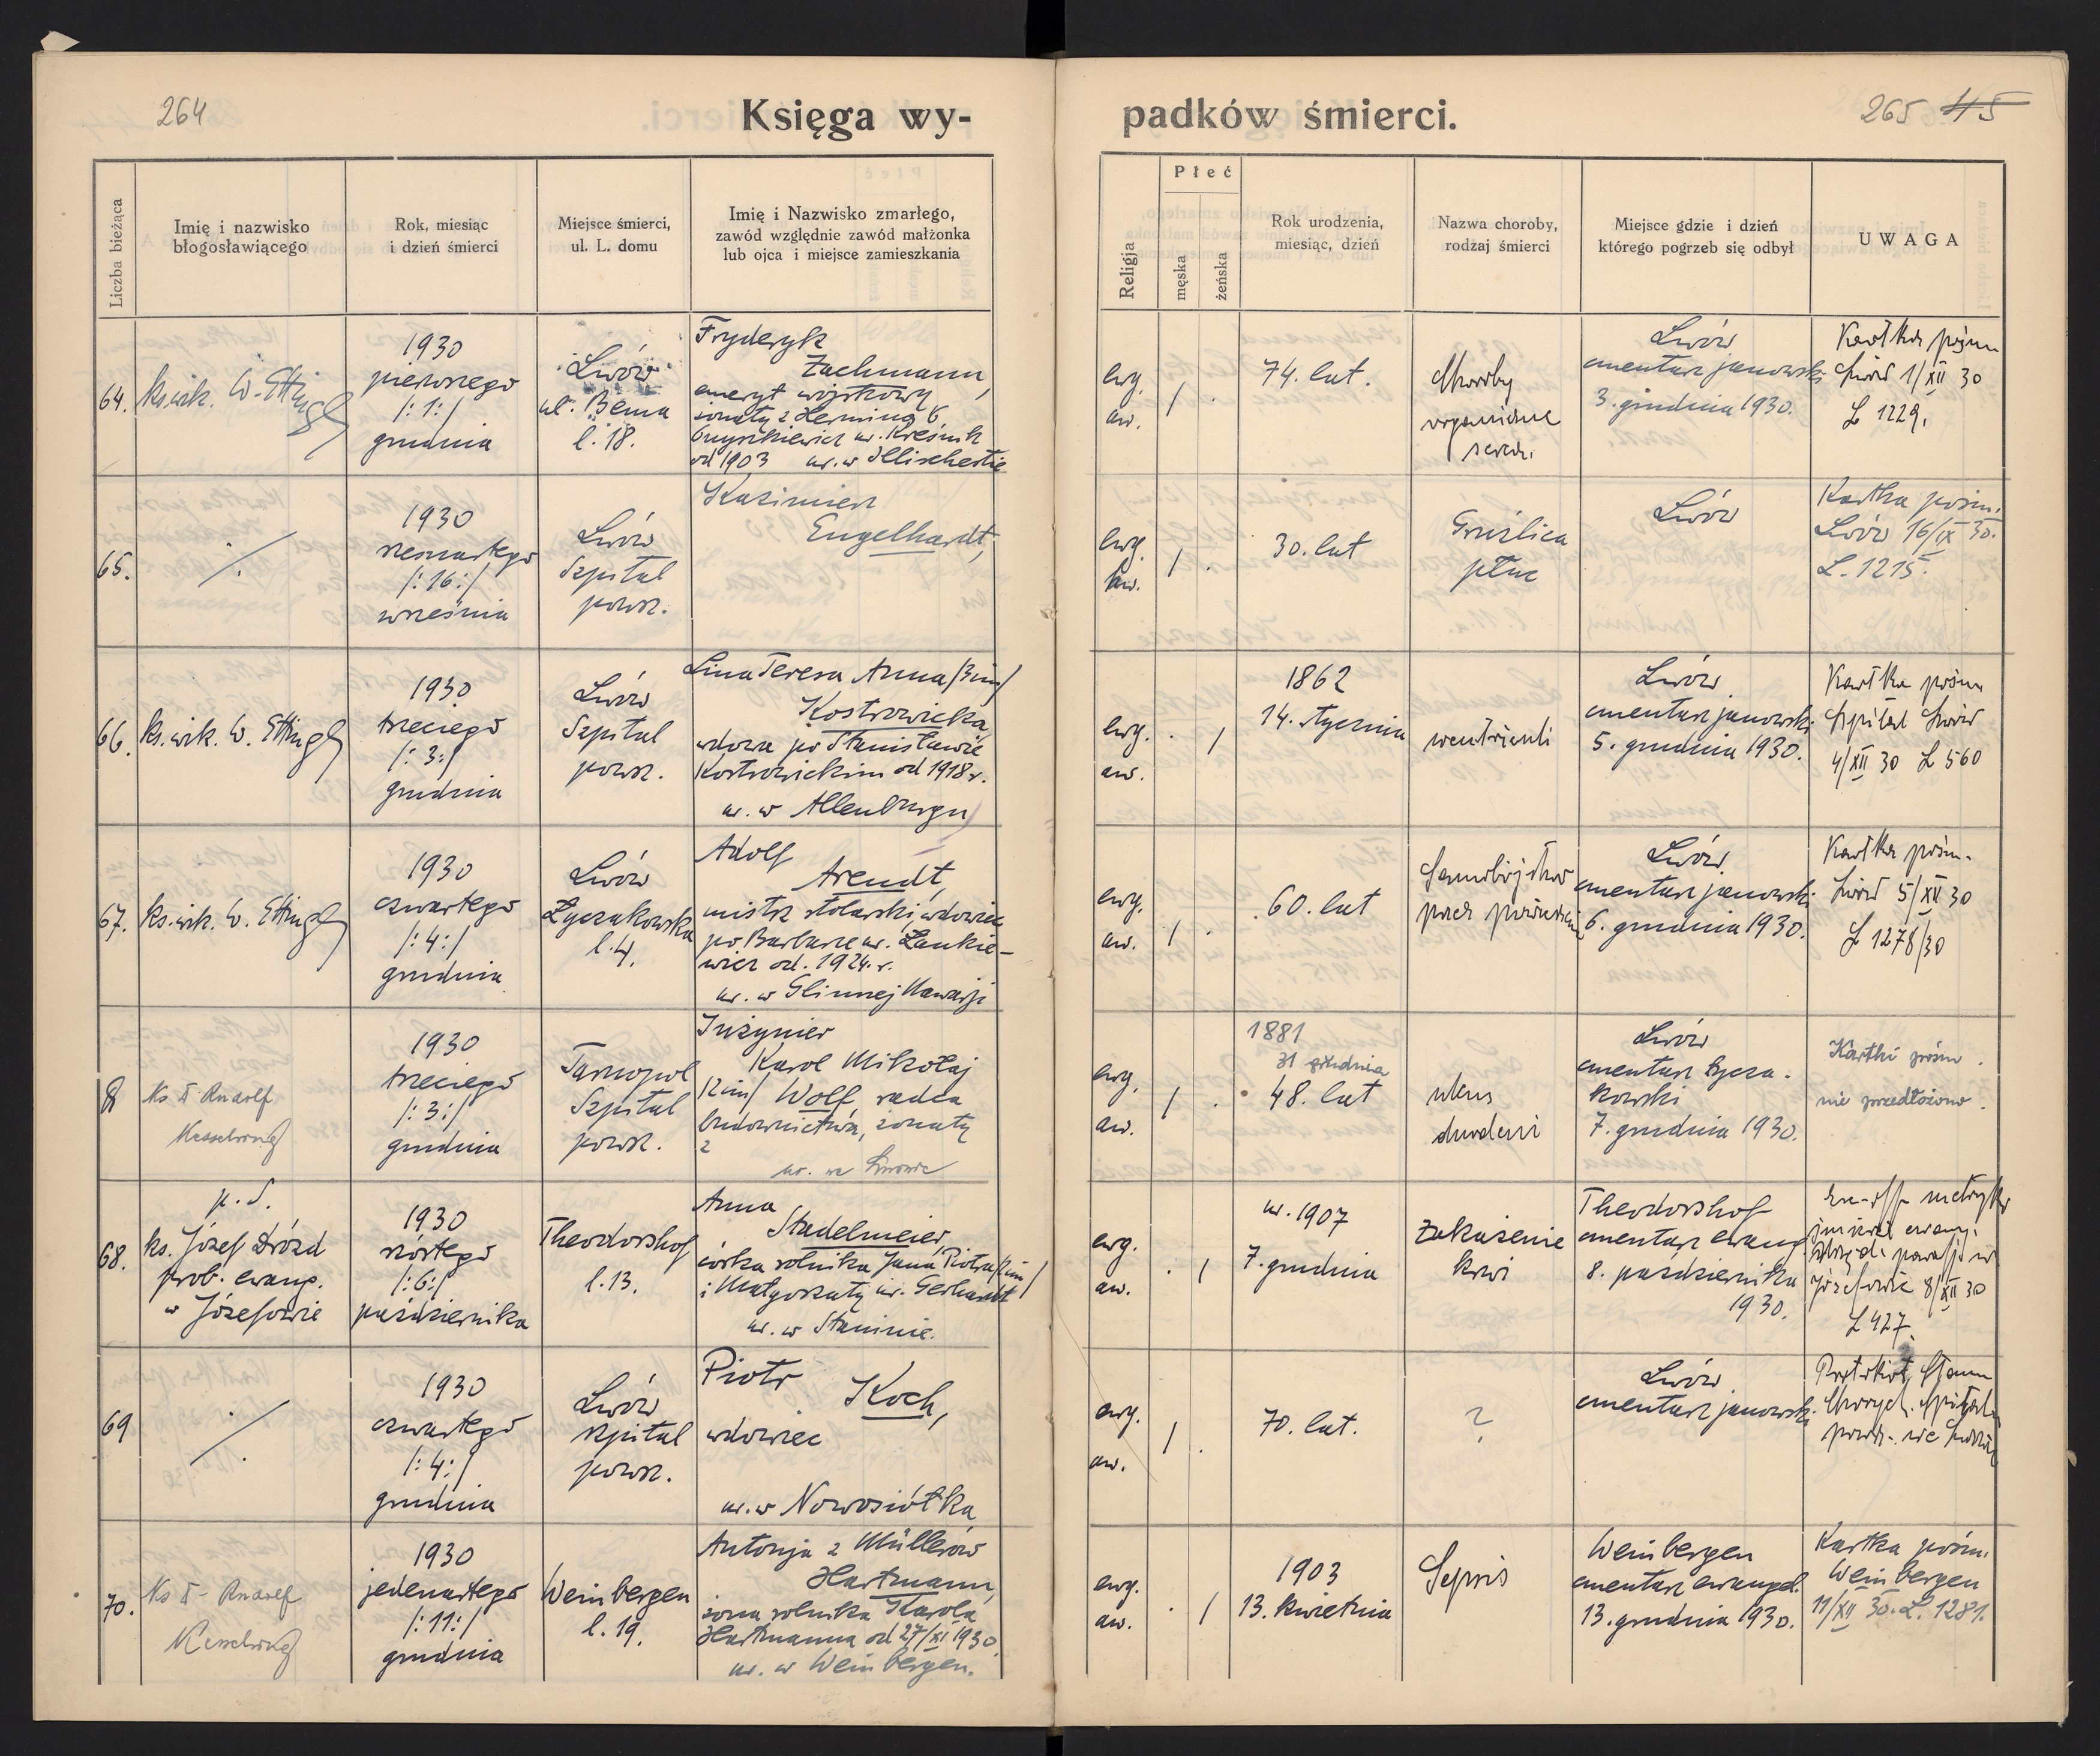 264
Księga wy-
Liczba bieżąca
Imię i nazwisko
błogosławiącego
Rok, miesiąc
i dzień śmierci
Miejsce śmierci,
ul. L. domu
Imię i Nazwisko zmarłego,
zawód względnie zawód małżonka
lub ojca i miejsce zamieszkania
64.
ks. wik. W. Ettinger
1930
pierwszego
/:1:/
grudnia
Lwów
ul. Bema
l. 18.
Fryderyk
Zachmann,
emeryt wojskowy
żonaty z Herminą
ur. Kreśnik
od 1903 ur. w Illischestie
65.
1930
szesnastego
/:16:/
września
Lwów
Szpital
powsz.
Kazimierz
Engelhardt,
66.
ks. wik. W. Ettinger
1930
trzeciego
/:3:/
grudnia
Lwów
Szpital
powsz.
Lina Teresa Anna /3 im/
Kostrowicka,
wdowa po Stanisławie
Kostrowickim od 1918 r.
ur. w Altenburgu
67.
ks. wik. W. Ettinger
1930
czwartego
/:4:/
grudnia
Lwów
Łyczakowska
l. 4.
Adolf
Arendt,
mistrz stolarski, wdowiec
po Barbarze ur. Łankie-
wicz od. 1924. r.
ur. w Glinnej Nawarji
Ks Rudolf
Kesselring
1930
trzeciego
/:3:/
grudnia
Tarnopol
Szpital
powsz.
Inżynier
Karol Mikołaj
/2 im/ Wolf, radca
budownictwa, żonaty
z
ur. we Lwowie
68.
p. d.
ks. Józef Drózd
prob. ewang.
w Józefowie
1930
szóstego
/:6:/
października
Theodorshof
l. 13.
Anna
Stadelmeier,
córka rolnika Jana Piotra /2 im/
i Małgorzaty ur. Gerhardt
ur. w Staninie.
69
1930
czwartego
/:4:/
grudnia
Lwów
szpital
powsz.
Piotr
Koch,
wdowiec
ur. w Nowosiółka
70.
Ks Rudolf
Kesselring
1930
jedenastego
/:11:/
grudnia
Weinbergen
l. 19.
Antonja z Müllerów
Hartmann,
żona rolnika Karola
Hartmanna od 27/XI 1930
ur. w Weinbergen.
padków śmierci.
265 45
Religja
Płeć
męska
żeńska
Rok urodzenia,
miesiąc, dzień
Nazwa choroby,
rodzaj śmierci
Miejsce gdzie i dzień
którego pogrzeb się odbył
UWAGA
ewg.
aw.
/ .
74. lat.
Choroby
organiczne
serca.
Lwów
cmentarz janowski
3. grudnia 1930.
Kartka pośm
Lwów 1/XII 30
L 1229.
ewg.
aw.
/ .
30. lat
Gruźlica
płuc
Lwów
Kartka pośm.
Lwów 16/IX 30.
L. 1215.
ewg.
aw.
. /
1862
14. stycznia
Lwów
cmentarz janowski
5. grudnia 1930.
Kartka pośm
Szpital Lwów
4/XII 30 L 560
ewg.
aw.
/ .
60. lat
Samobójstwo
przez powieszenie
Lwów
cmentarz janowski
6. grudnia 1930.
Kartka pośm.
Lwów 5/XII 30
L 1278/30
ewg.
aw.
/ .
1881
31 grudnia
48. lat
ulcus
duodeni
Lwów
cmentarz Łycza-
kowski
7. grudnia 1930.
Kartki pośm.
nie przedłożono.
ewg.
aw.
. /
ur. 1907
7. grudnia
Zakażenie
krwi
Theodorshof
cmentarz ewang
8. października
1930.
metryka
śmierci ewang.
parafji w
Józefowie 8/XII 30
L 427.
ewg.
aw.
/ .
70. lat.
?
Lwów
cmentarz janowski
chorych. szpitala
powsz. we Lwowie
ewg.
aw.
. /
1903
13. kwietnia
Sepsis
Weinbergen
cmentarz ewangel.
13. grudnia 1930.
Kartka pośm.
Weinbergen
11/XII 30. L. 1281.